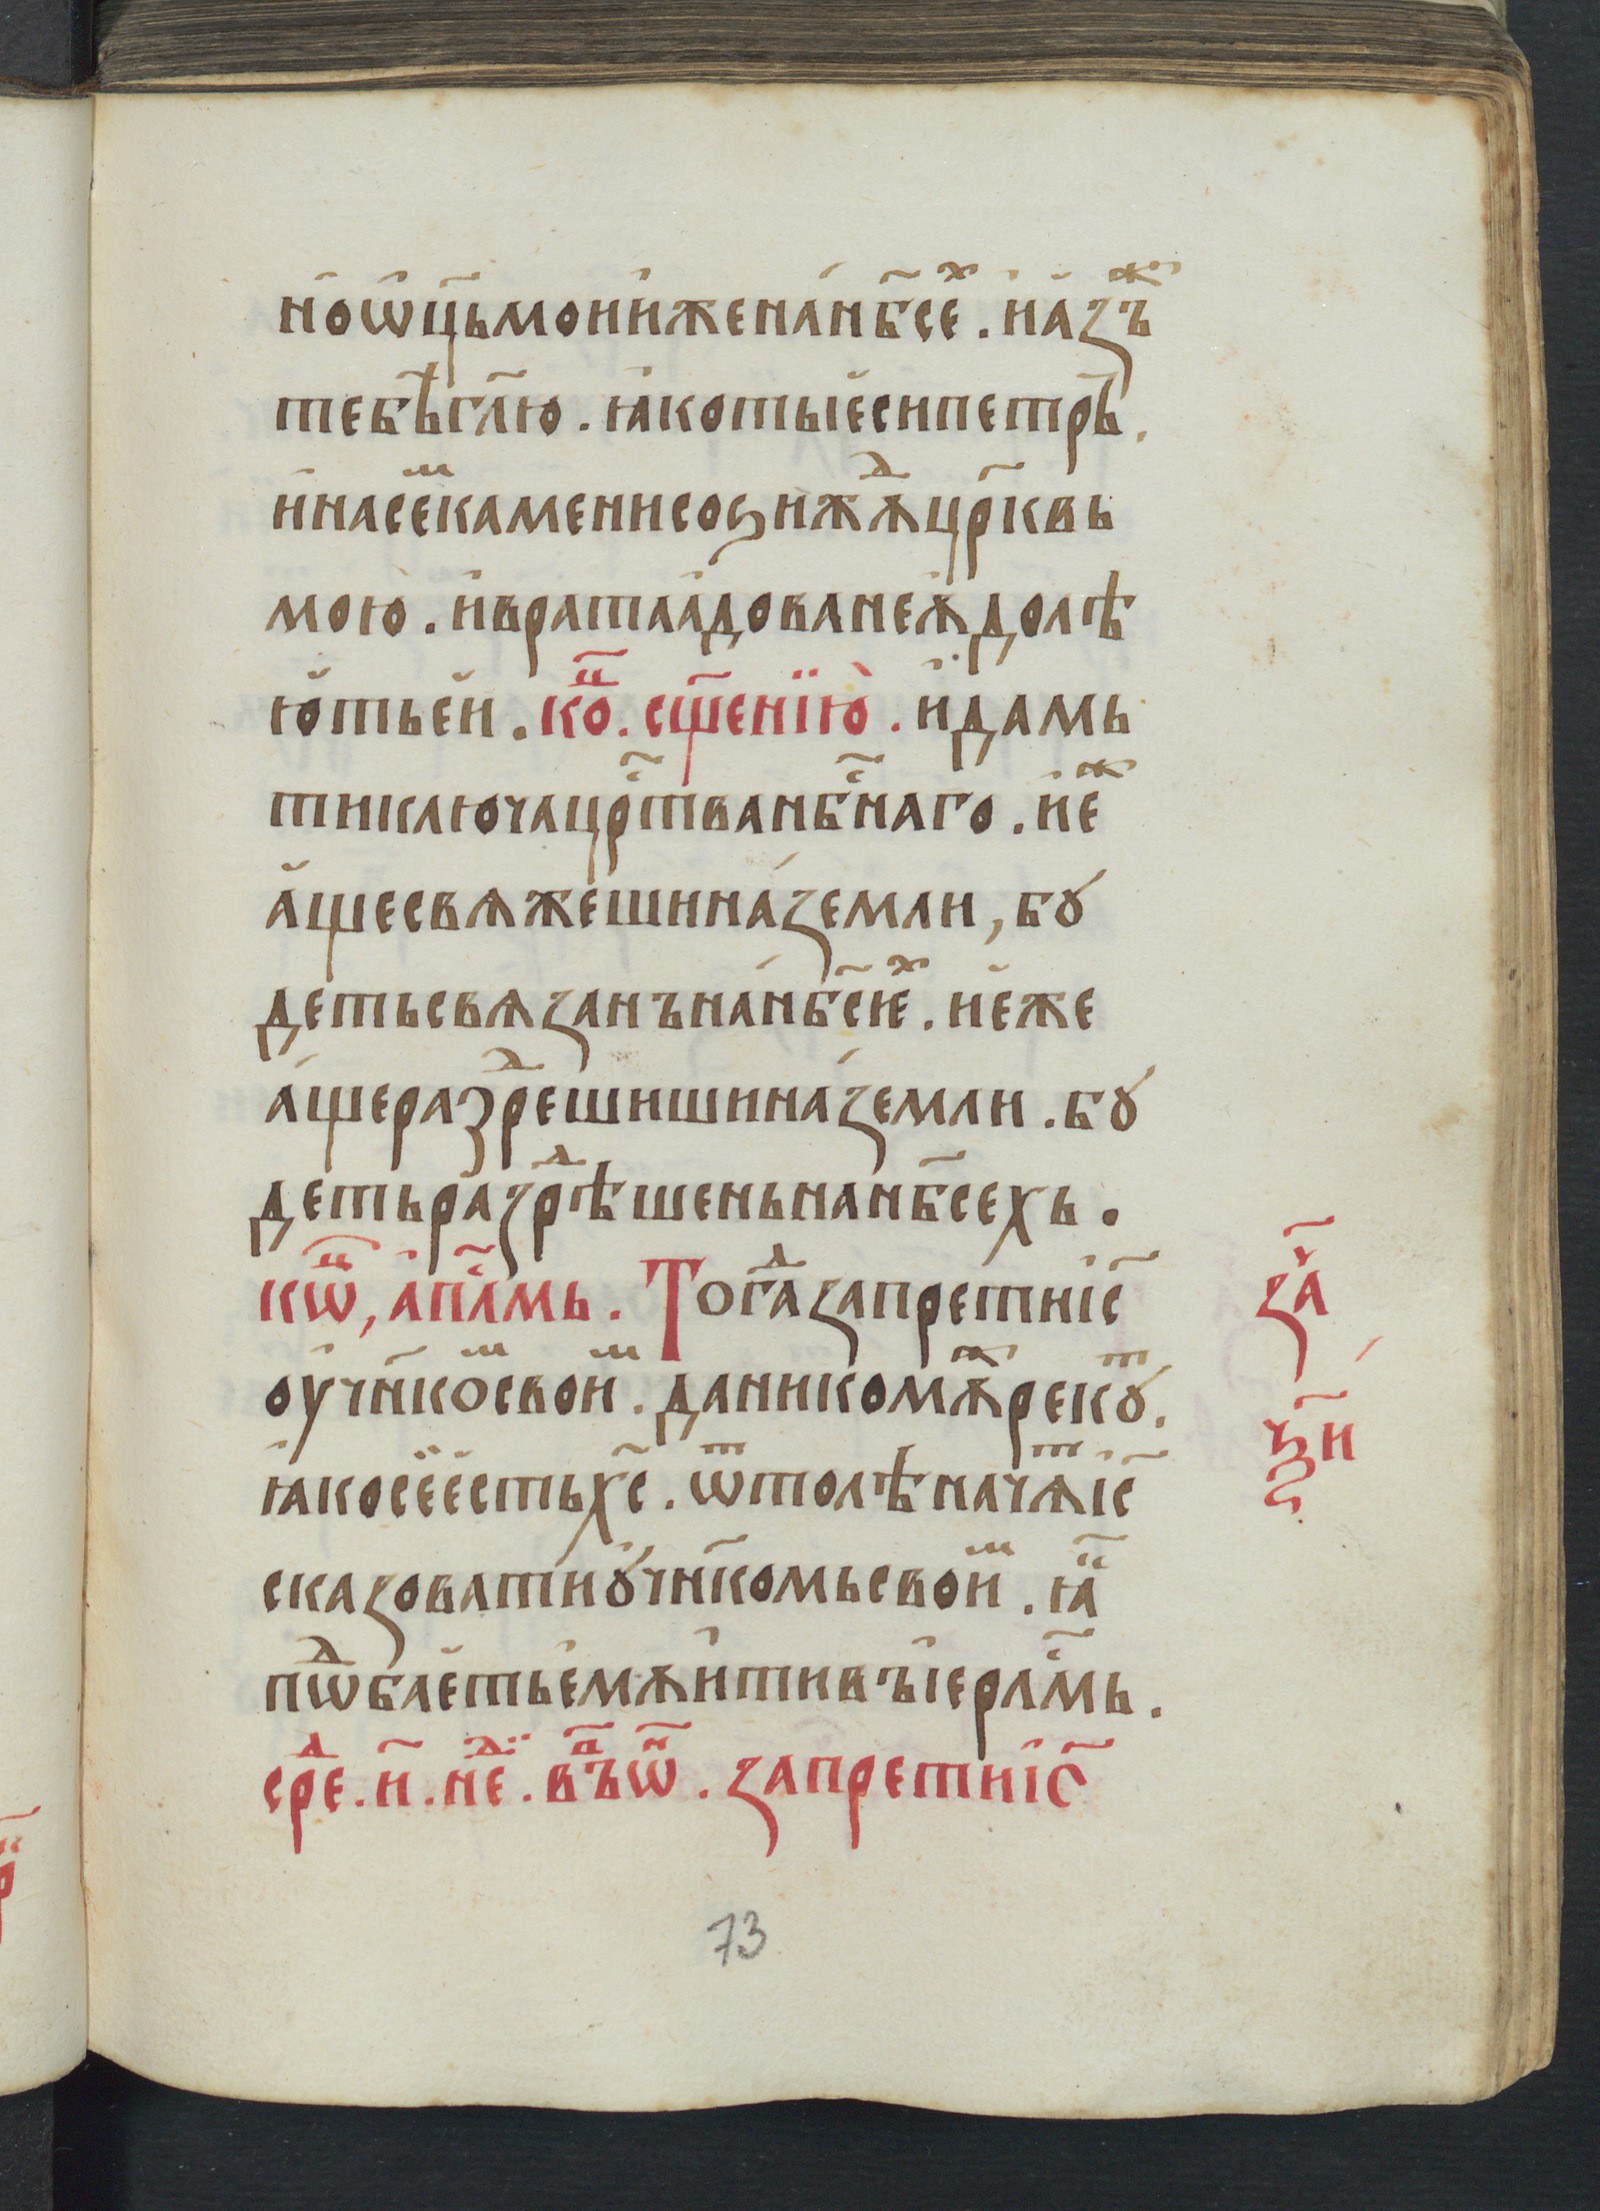 но ѡ҃ц҃ь мои иже на нб҃се ⷯ. и азъ ⷤ
тебѣ гл҃ю. ꙗко ты еси петръ.
и на се ⷨ камени созиж ⷣѫ цр҃квь
мою. и врата адова не ѫдолѣ
ють еи. ко ⷰ҃. сщ҃енїю. и дамь
ти ключа цр҃тва нб҃наго. и е ⷤ
аще свѧжеши на земли, бꙋ
деть свѧзанъ на нб҃сїе ⷯ. и еже
аще раз ⷣрешиши на земли. бꙋ
деть раз ⷣрѣшень на нб҃сехь.
кѡ ⷰ҃, ап҃лмь. Тог ⷣа запрети іс҃
оучн҃ко ⷨ свои ⷨ. да никомѫ ⷤ рекꙋ ⷮ.
ꙗко се есть хс҃. ѿтолѣ нач ⷮѧ іс҃
сказовати ꙋчн҃комь свои ⷨ. ꙗ҃
пѡ ⷣбаеть емѫ ити въ іерл҃мь.
сре ⷣ. н҃. не ⷣ. въ ⷫ҃ ѡ҃ ⷩ. запрети іс҃
за ⷱ҃
ѯ҃и
73